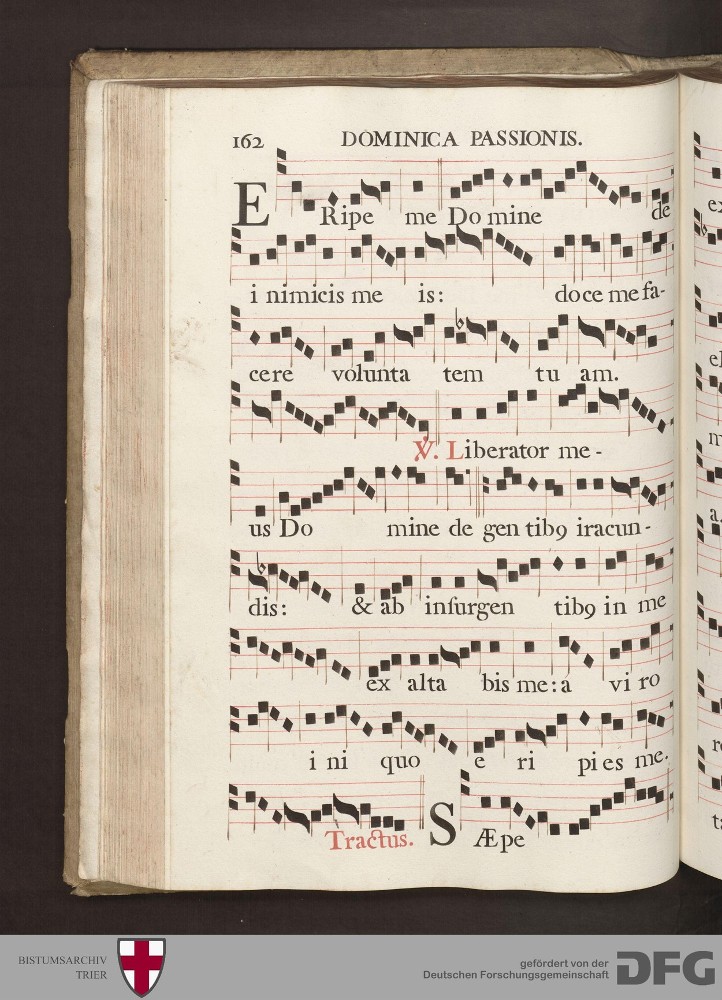 162 DOMINICA PASSIONIS.
ERipe me Do mine de
i nimicis me is: doce me fa-
cere volunta tem tu am.
℣. Liberator me-
us Do mine de gen tibꝯ iracun-
dis: & ab insurgen tibꝯ in me
ex alta bis me: a vi ro
i ni quo e ri pi es me.
Tractus. SÆpe
BISTUMSARCHIV
TRIER
gefördert von der
Deutschen Forschungsgemeinschaft
DFG